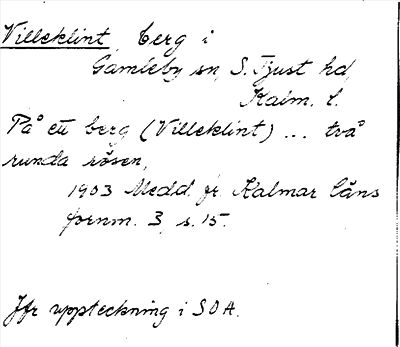 Villeklint, berg i
Gamleby sn, S. Tjust hd,
Kalm. l.
På ett berg (Villeklint) ... två
runda rösen,
1903 Medd. fr. Kalmar läns
fornm. 3, s. 15.
Jfr uppteckning i SOA.